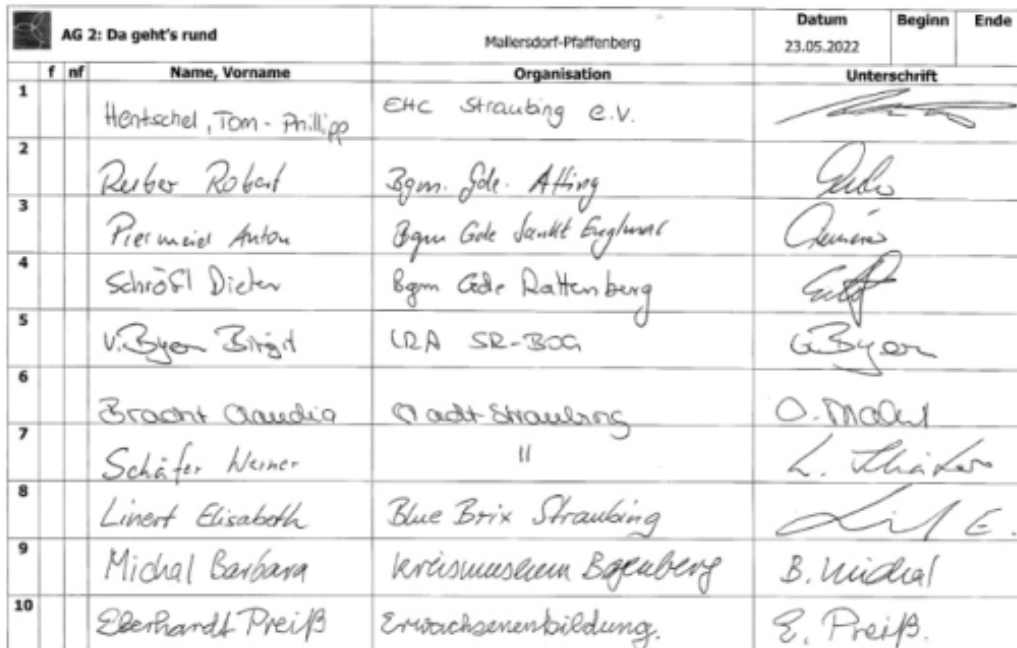 AG 2: Da geht's rund Mallersdorf-Pfaffenberg Datum 23.05.2022 Beginn Ende
f nf Name, Vorname Organisation Unterschrift
1 Hentschel, Tom-Phillipp EHC Straubing e.V.
2 Reiber Robert Bgm. Gde. Atting
3 Piermeier Anton Bgm Gde Sankt Englmar
4 Schröfl Dieter Bgm Gde Rattenberg
5 v. Byern Birgit LRA SR-BOG v. Byern
6 Bracht Claudia Stadt Straubing
7 Schäfer Werner " W. Schäfer
8 Linert Elisabeth Blue Brix Straubing E.
9 Michal Barbara Kreismuseum Bogenberg B. Michal
10 Eberhardt Preiß Erwachsenenbildung. E. Preiß.